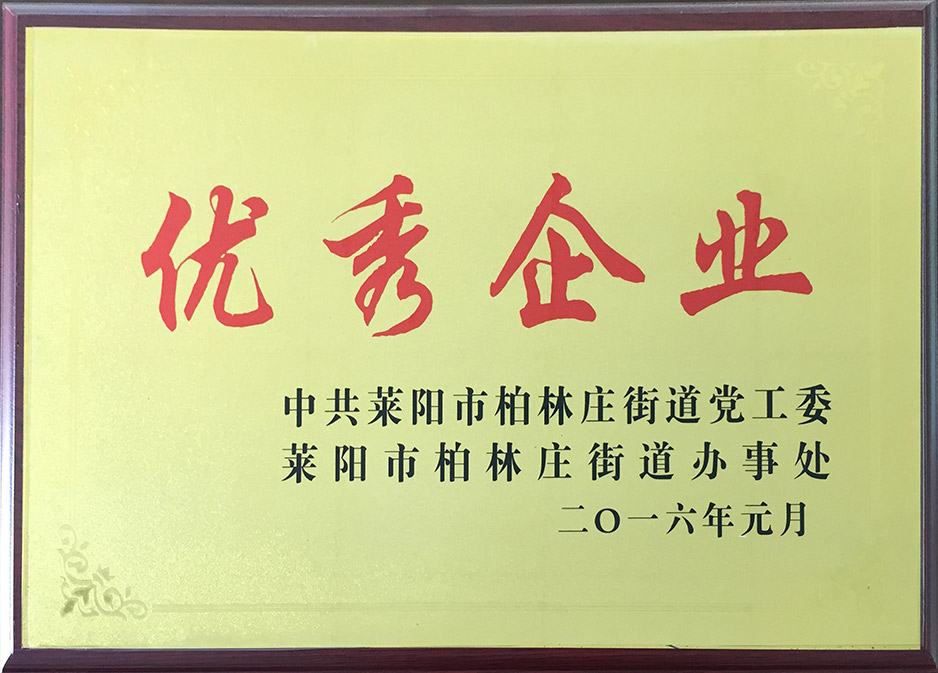 优秀企业
中共莱阳市柏林庄街道党工委
莱阳市柏林庄街道办事处
二〇一六年元月